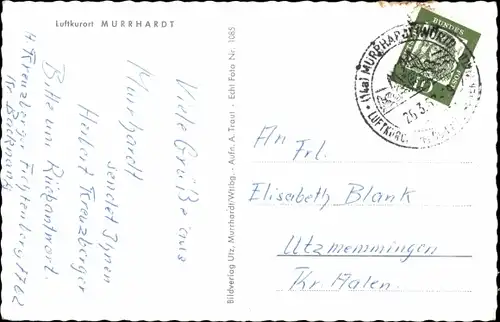 Luftkurort MURRHARDT
Viele Grüße aus
Murrhardt
sendet Ihnen
Herbert Kreuzberger
Bitte um Rückantwort.
H. Kreuzberger Fichtenberg 1762
Kr. Backnang
Bildverlag Utz, Murrhardt/Wttbg. - Aufn. A. Traut · Echt Foto Nr. 1085
DEUTSCHE BUNDES
10
(14a) MURRHARDT (WÜRTT)
26.3.
LUFTKUR
An Frl.
Elisabeth Blank
Utzmemmingen
Kr. Aalen.